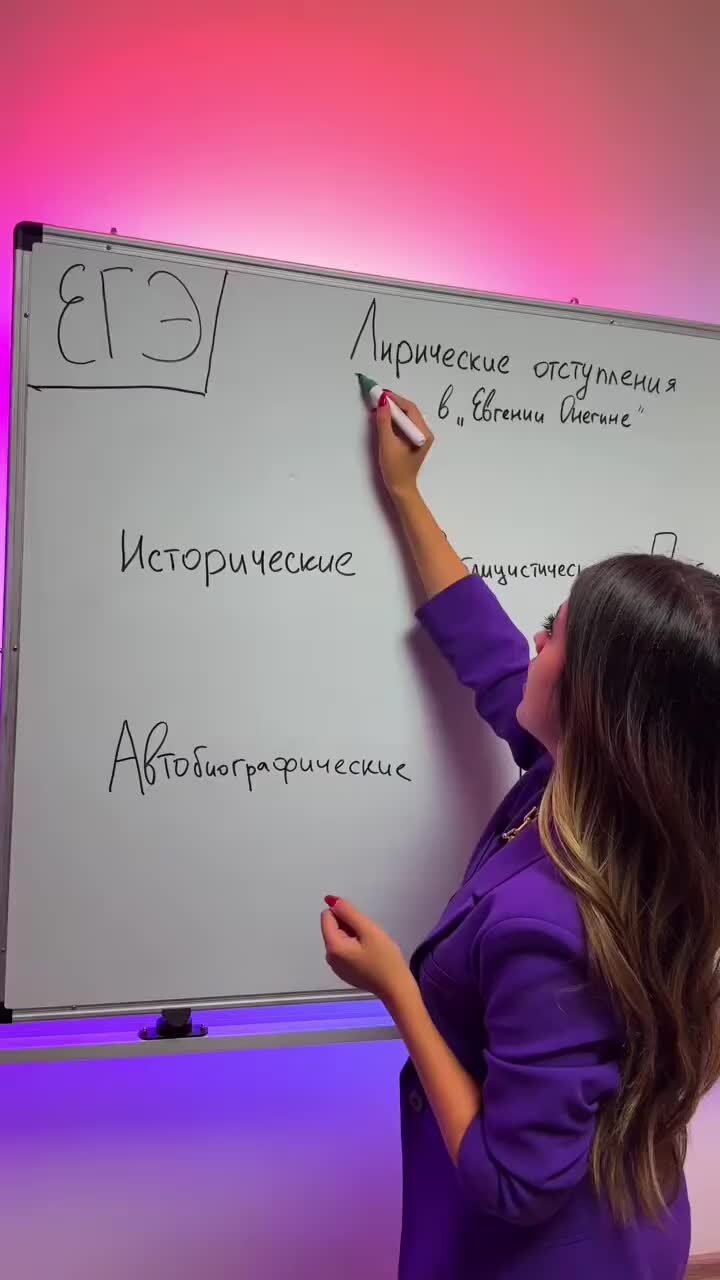 ЕГЭ
Лирические отступления
в „Евгении Онегине"
Исторические
Автобиографические